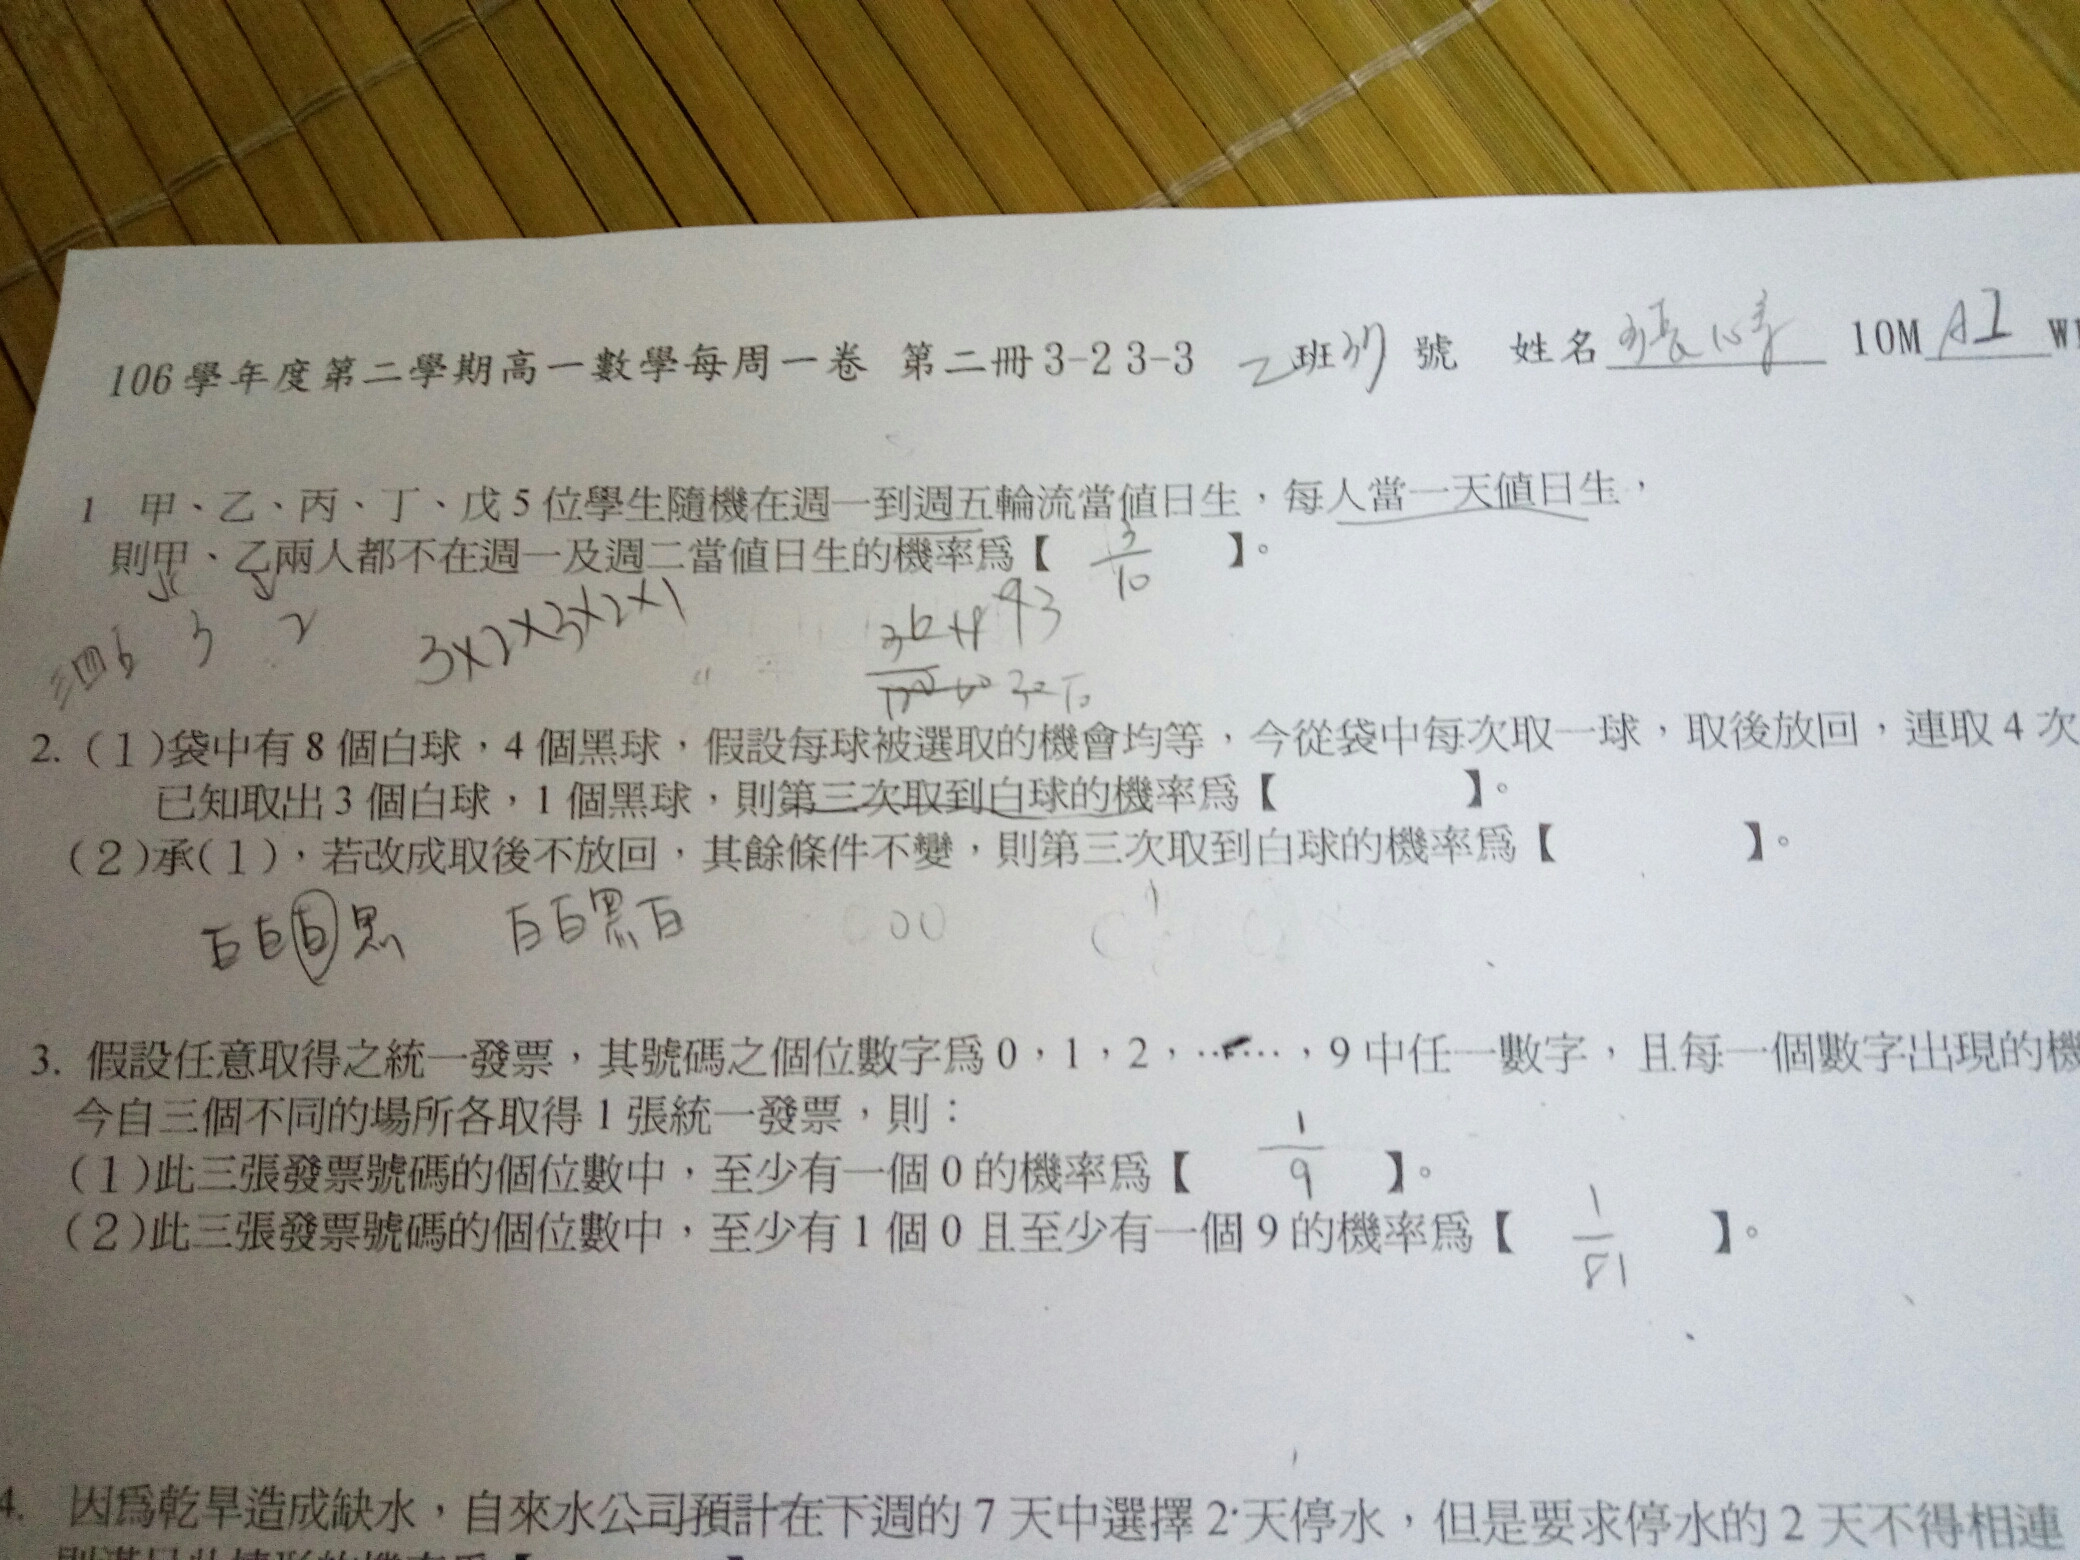 106學年度第二學期高一數學每周一卷 第二冊3-2 3-3 乙班37號 姓名 10M A I W
1 甲、乙、丙、丁、戊5位學生隨機在週一到週五輪流當值日生，每人當一天值日生，
則甲、乙兩人都不在週一及週二當值日生的機率為【 3/10 】。
三四五 3 2 3×2×3×2×1
2. (1)袋中有8個白球，4個黑球，假設每球被選取的機會均等，今從袋中每次取一球，取後放回，連取4次
已知取出3個白球，1個黑球，則第三次取到白球的機率為【 】。
(2)承(1)，若改成取後不放回，其餘條件不變，則第三次取到白球的機率為【 】。
白白白黑 白白黑白
3. 假設任意取得之統一發票，其號碼之個位數字為0，1，2，……，9中任一數字，且每一個數字出現的機
今自三個不同的場所各取得1張統一發票，則：
(1)此三張發票號碼的個位數中，至少有一個0的機率為【 1/9 】。
(2)此三張發票號碼的個位數中，至少有1個0且至少有一個9的機率為【 1/81 】。
4. 因為乾旱造成缺水，自來水公司預計在下週的7天中選擇2天停水，但是要求停水的2天不得相連